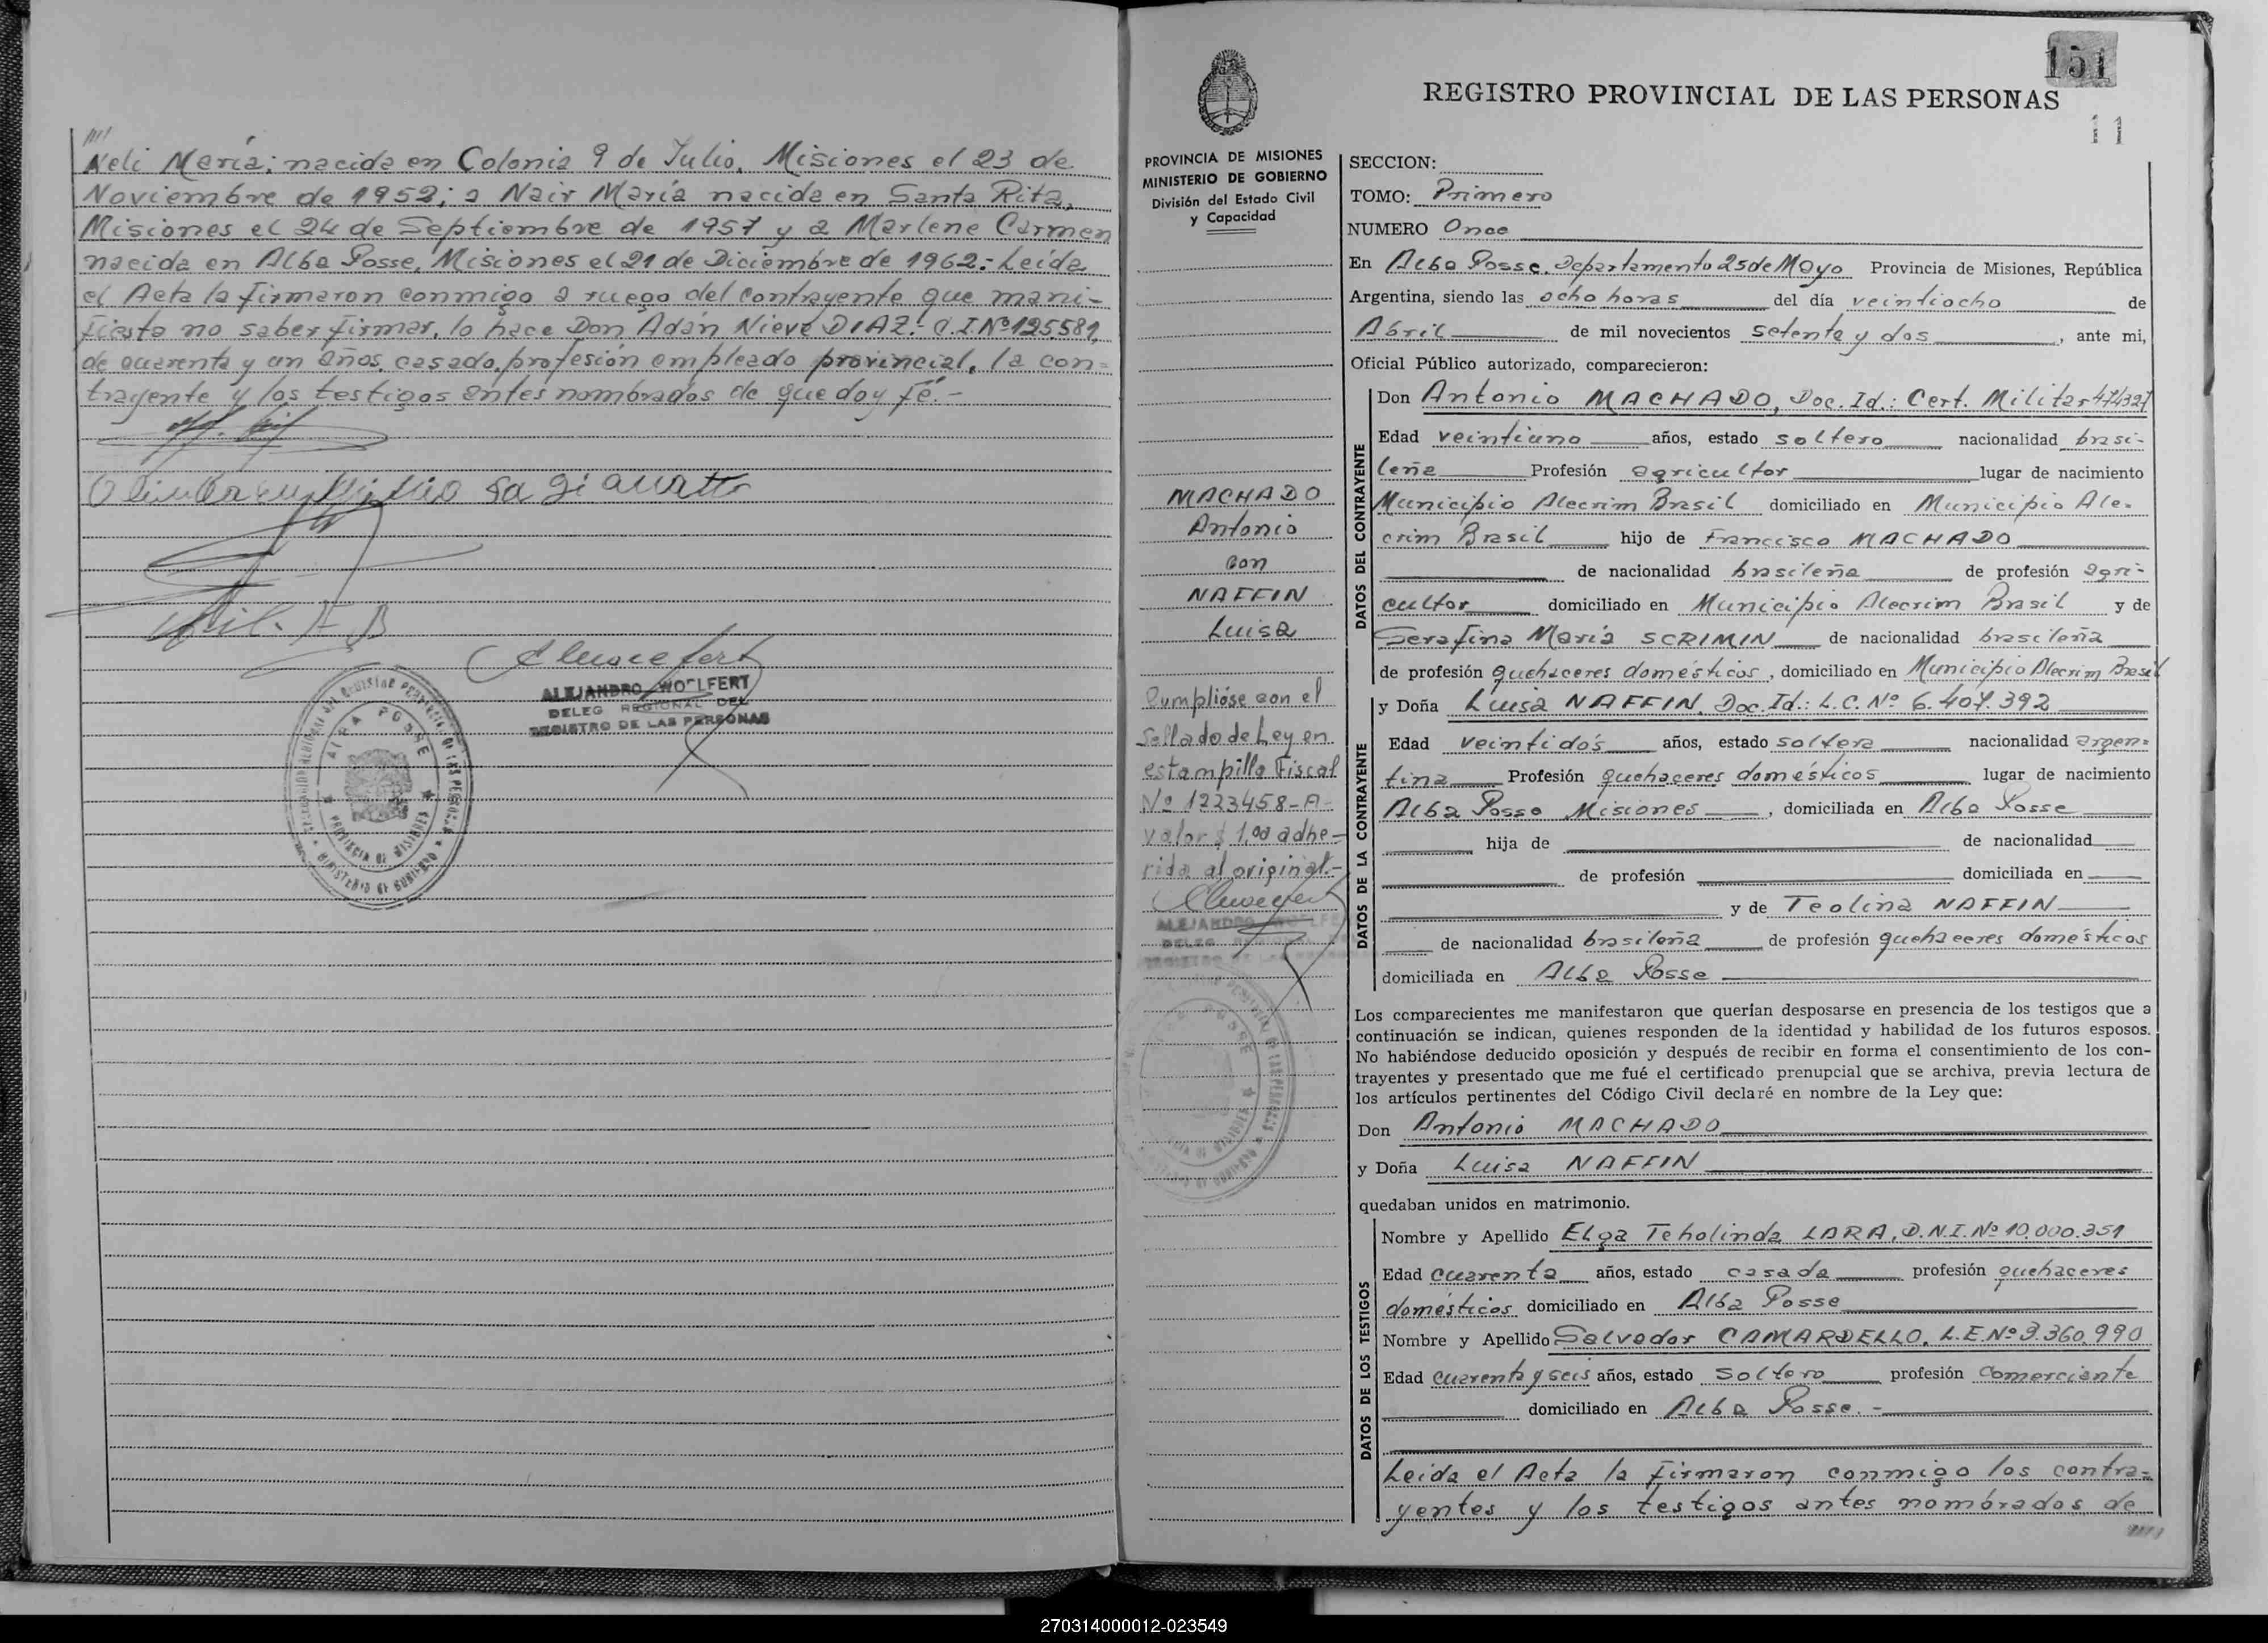 Neli María; nacida en Colonia 9 de Julio, Misiones el 23 de
Noviembre de 1952; a Nair María nacida en Santa Rita,
Misiones el 24 de Septiembre de 1957 y a Marlene Carmen
nacida en Alba Posse, Misiones el 21 de Diciembre de 1962.- Leída
el Acta la firmaron conmigo a ruego del contrayente que mani-
fiesta no saber firmar, lo hace Don Adán Nieve DIAZ.- C.I.Nº 125.581,
de cuarenta y un años, casado, profesión empleado provincial, la con-
trayente y los testigos antes nombrados de que doy fé.-
ALEJANDRO WOLFERT
DELEG REGIONAL DEL
REGISTRO DE LAS PERSONAS
ALBA POSSE
PROVINCIA DE MISIONES
MINISTERIO DE GOBIERNO
151
REGISTRO PROVINCIAL DE LAS PERSONAS
11
PROVINCIA DE MISIONES
MINISTERIO DE GOBIERNO
División del Estado Civil
y Capacidad
MACHADO
Antonio
con
NAFFIN
Luisa
Cumplióse con el
Sellado de Ley en
estampilla Fiscal
Nº 1223458-A-
valor $ 1,00 adhe-
rida al original.-
ALEJANDRO WOLFERT
SECCION:
TOMO: Primero
NUMERO Once
En Alba Posse, Departamento 25 de Mayo Provincia de Misiones, República
Argentina, siendo las ocho horas del día veintiocho de
Abril de mil novecientos setenta y dos, ante mi,
Oficial Público autorizado, comparecieron:
DATOS DEL CONTRAYENTE
Don Antonio MACHADO, Doc. Id.: Cert. Militar 474327
Edad veintiuno años, estado soltero nacionalidad brasi-
leña Profesión agricultor lugar de nacimiento
Municipio Alecrim Brasil domiciliado en Municipio Ale-
crim Brasil hijo de Francisco MACHADO
de nacionalidad brasileña de profesión agri-
cultor domiciliado en Municipio Alecrim Brasil y de
Serafina María SCRIMIN de nacionalidad brasileña
de profesión quehaceres domésticos, domiciliado en Municipio Alecrim Brasil
DATOS DE LA CONTRAYENTE
y Doña Luisa NAFFIN, Doc. Id.: L.C. Nº 6.407.392
Edad veintidós años, estado soltera nacionalidad argen-
tina Profesión quehaceres domésticos lugar de nacimiento
Alba Posse Misiones, domiciliada en Alba Posse
hija de de nacionalidad
de profesión domiciliada en
y de Teolina NAFFIN
de nacionalidad brasileña de profesión quehaceres domésticos
domiciliada en Alba Posse
Los comparecientes me manifestaron que querían desposarse en presencia de los testigos que a
continuación se indican, quienes responden de la identidad y habilidad de los futuros esposos.
No habiéndose deducido oposición y después de recibir en forma el consentimiento de los con-
trayentes y presentado que me fué el certificado prenupcial que se archiva, previa lectura de
los artículos pertinentes del Código Civil declaré en nombre de la Ley que:
Don Antonio MACHADO
y Doña Luisa NAFFIN
quedaban unidos en matrimonio.
DATOS DE LOS TESTIGOS
Nombre y Apellido Elga Teholinda LARA, D.N.I. Nº 10.000.351
Edad cuarenta años, estado casada profesión quehaceres
domésticos domiciliado en Alba Posse
Nombre y Apellido Salvador CAMARDELLO, L.E. Nº 3.360.990
Edad cuarenta y seis años, estado soltero profesión comerciante
domiciliado en Alba Posse.-
Leída el Acta la firmaron conmigo los contra-
yentes y los testigos antes nombrados de
270314000012-023549